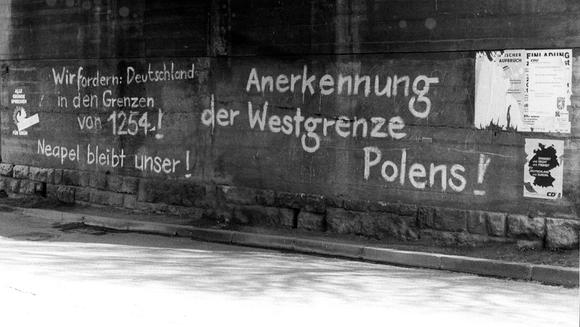 Wir fordern: Deutschland
in den Grenzen
von 1254!
Neapel bleibt unser!
Anerkennung
der Westgrenze
Polens!
AUFBRUCH
EINLADUNG
CDU